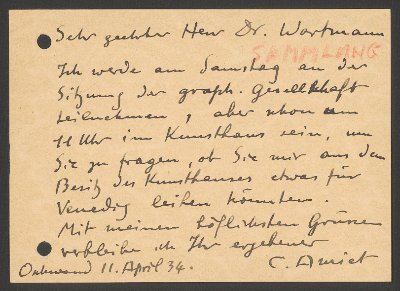 Sehr geehrter Herr Dr. Wartmann
SAMMLUNG
Ich werde am Samstag an der
Sitzung der graph. Gesellschaft
teilnehmen, aber schon um
11 Uhr im Kunsthaus sein, um
Sie zu fragen, ob Sie mir aus dem
Besitz des Kunsthauses etwas für
Venedig leihen könnten.
Mit meinen höflichsten Grüssen
verbleibe ich Ihr ergebener
C. Amiet
Oschwand 11. April 34.